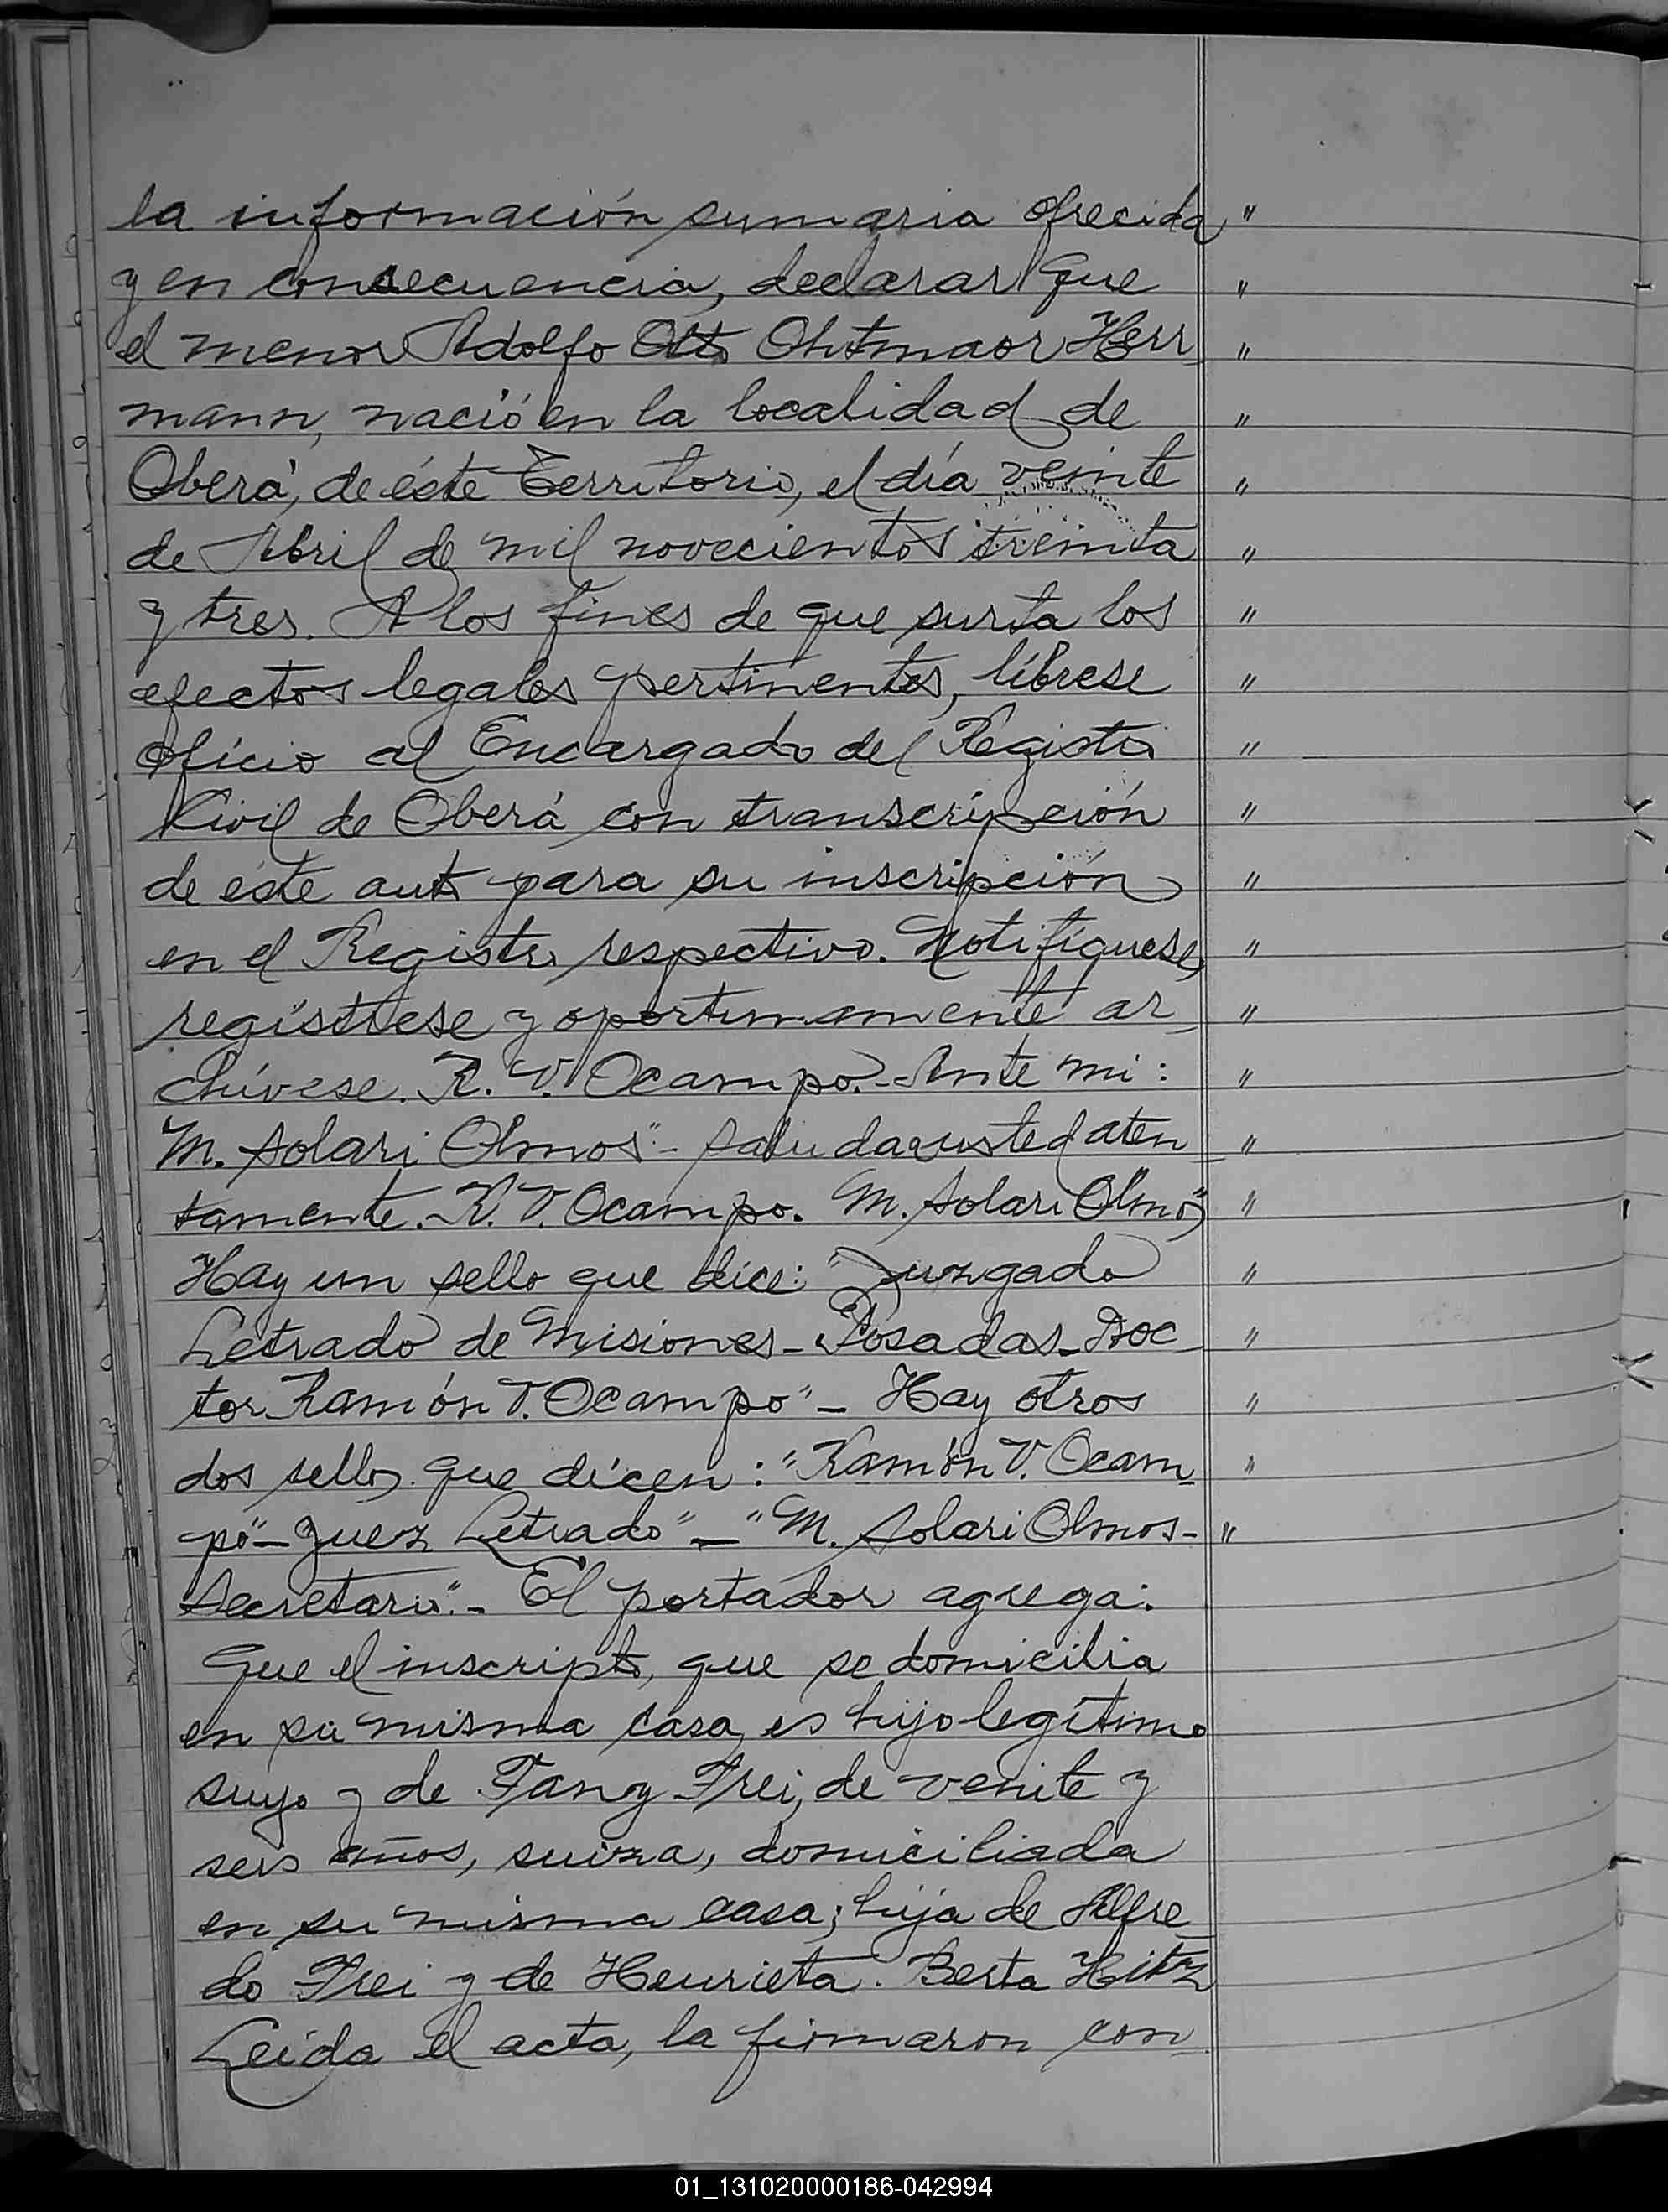 la información sumaria ofrecida "
y en consecuencia, declarar que "
el menor Adolfo Otto Ohtmaor Herr "
mann, nació en la localidad de "
Oberá, de éste Territorio, el día veinte "
de Abril de mil novecientos treinta "
y tres. A los fines de que surta los "
efectos legales pertinentes, líbrese "
oficio al Encargado del Registro "
Civil de Oberá con transcripción "
de éste auto para su inscripción "
en el Registro respectivo. Notifíquese, "
regístrese y oportunamente ar_ "
chívese. R. V. Ocampo.- Ante mi: "
M. Solari Olmos".- Saluda a usted aten "
tamente.- R. V. Ocampo. M. Solari Olmos" "
Hay un sello que dice: "Juzgado "
Letrado de Misiones_ Posadas_ Doc_ "
tor Ramón V. Ocampo" _ Hay otros "
dos sellos que dicen: "Ramón V. Ocam_ "
po"_ Juez Letrado" _ "M. Solari Olmos- "
Secretario".- El portador agrega:
Que el inscripto, que se domicilia
en su misma casa, es hijo legítimo
suyo y de Fany Frei, de veinte y
seis años, suiza, domiciliada
en su misma casa; hija de Alfre_
do Frei y de Henrieta Berta Hitz
Leida el acta, la firmaron con_
01_131020000186-042994